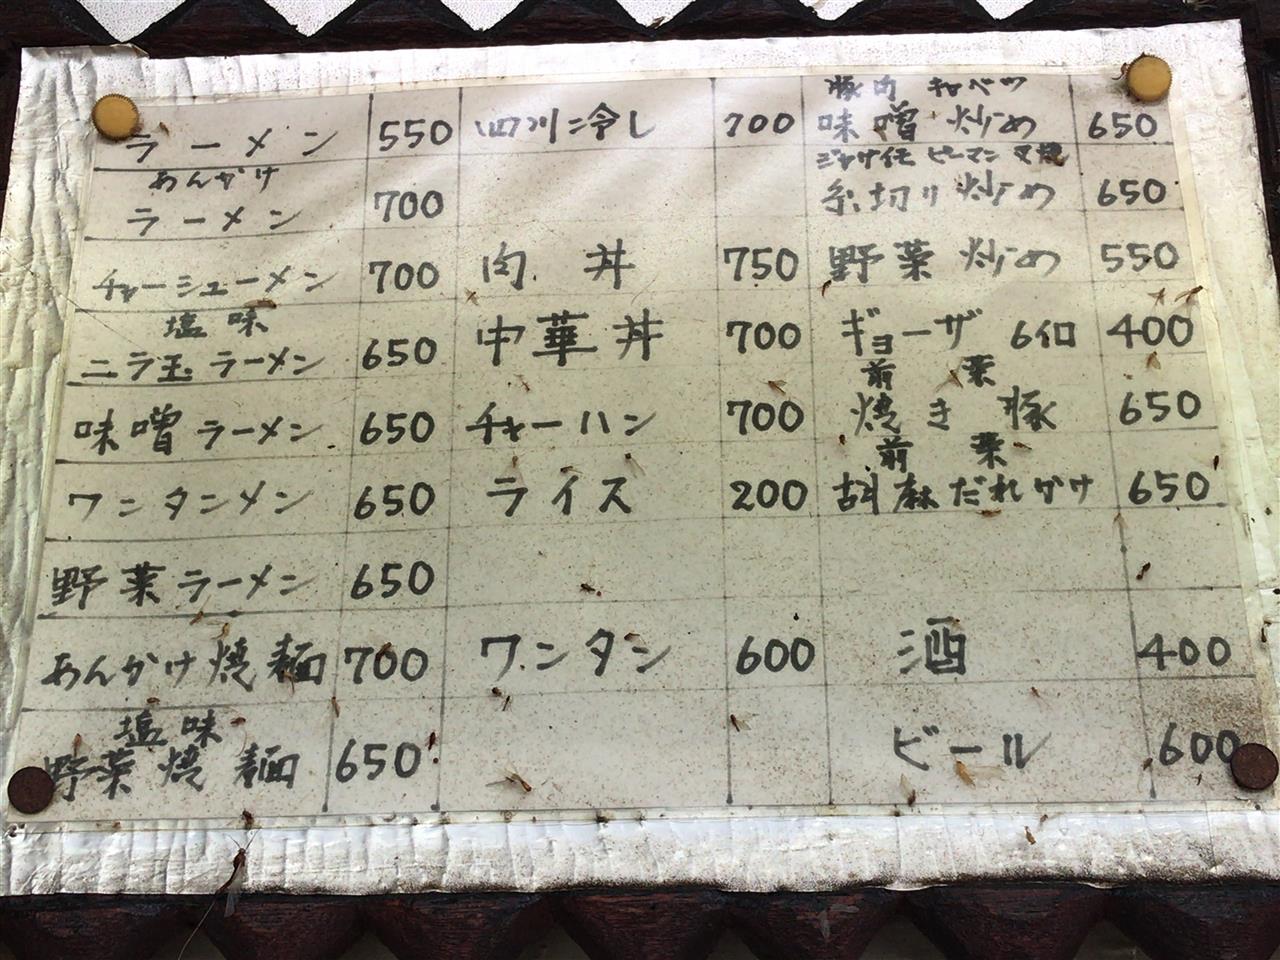 ラーメン 550
あんかけ
ラーメン 700
チャーシューメン 700
塩味
ニラ玉ラーメン 650
味噌ラーメン 650
ワンタンメン 650
野菜ラーメン 650
あんかけ焼麺 700
塩味
野菜焼麺 650
四川冷し 700
肉丼 750
中華丼 700
チャーハン 700
ライス 200
ワンタン 600
豚肉 キャベツ
味噌炒め 650
ジャガ芋 ピーマン 叉焼
糸切り炒め 650
野菜炒め 550
ギョーザ 6個 400
前菜
焼き豚 650
前菜
胡麻だれかけ 650
酒 400
ビール 600